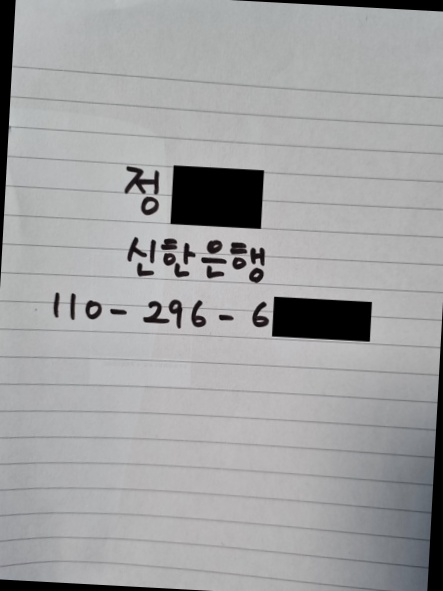 정
신한은행
110- 296 - 6